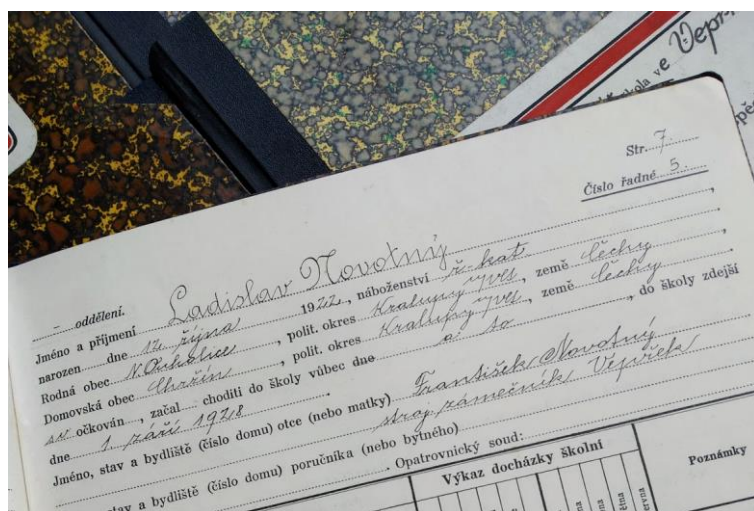 Vepř
škola ve
Str. 7.
Číslo řadné 5.
– oddělení.
Jméno a příjmení Ladislav Novotný,
narozen dne 12. října 1922, náboženství ř. kat.
Rodná obec , polit. okres Kralupy , země Čechy,
Domovská obec , polit. okres Kralupy , země Čechy,
očkován, začal choditi do školy vůbec dne a to , do školy zdejší
dne 1. září 1928.
Jméno, stav a bydliště (číslo domu) otce (nebo matky) František Novotný
stroj. zámečník Vepřek
stav a bydliště (číslo domu) poručníka (nebo bytného)
Opatrovnický soud:
Výkaz docházky školní
Poznámky